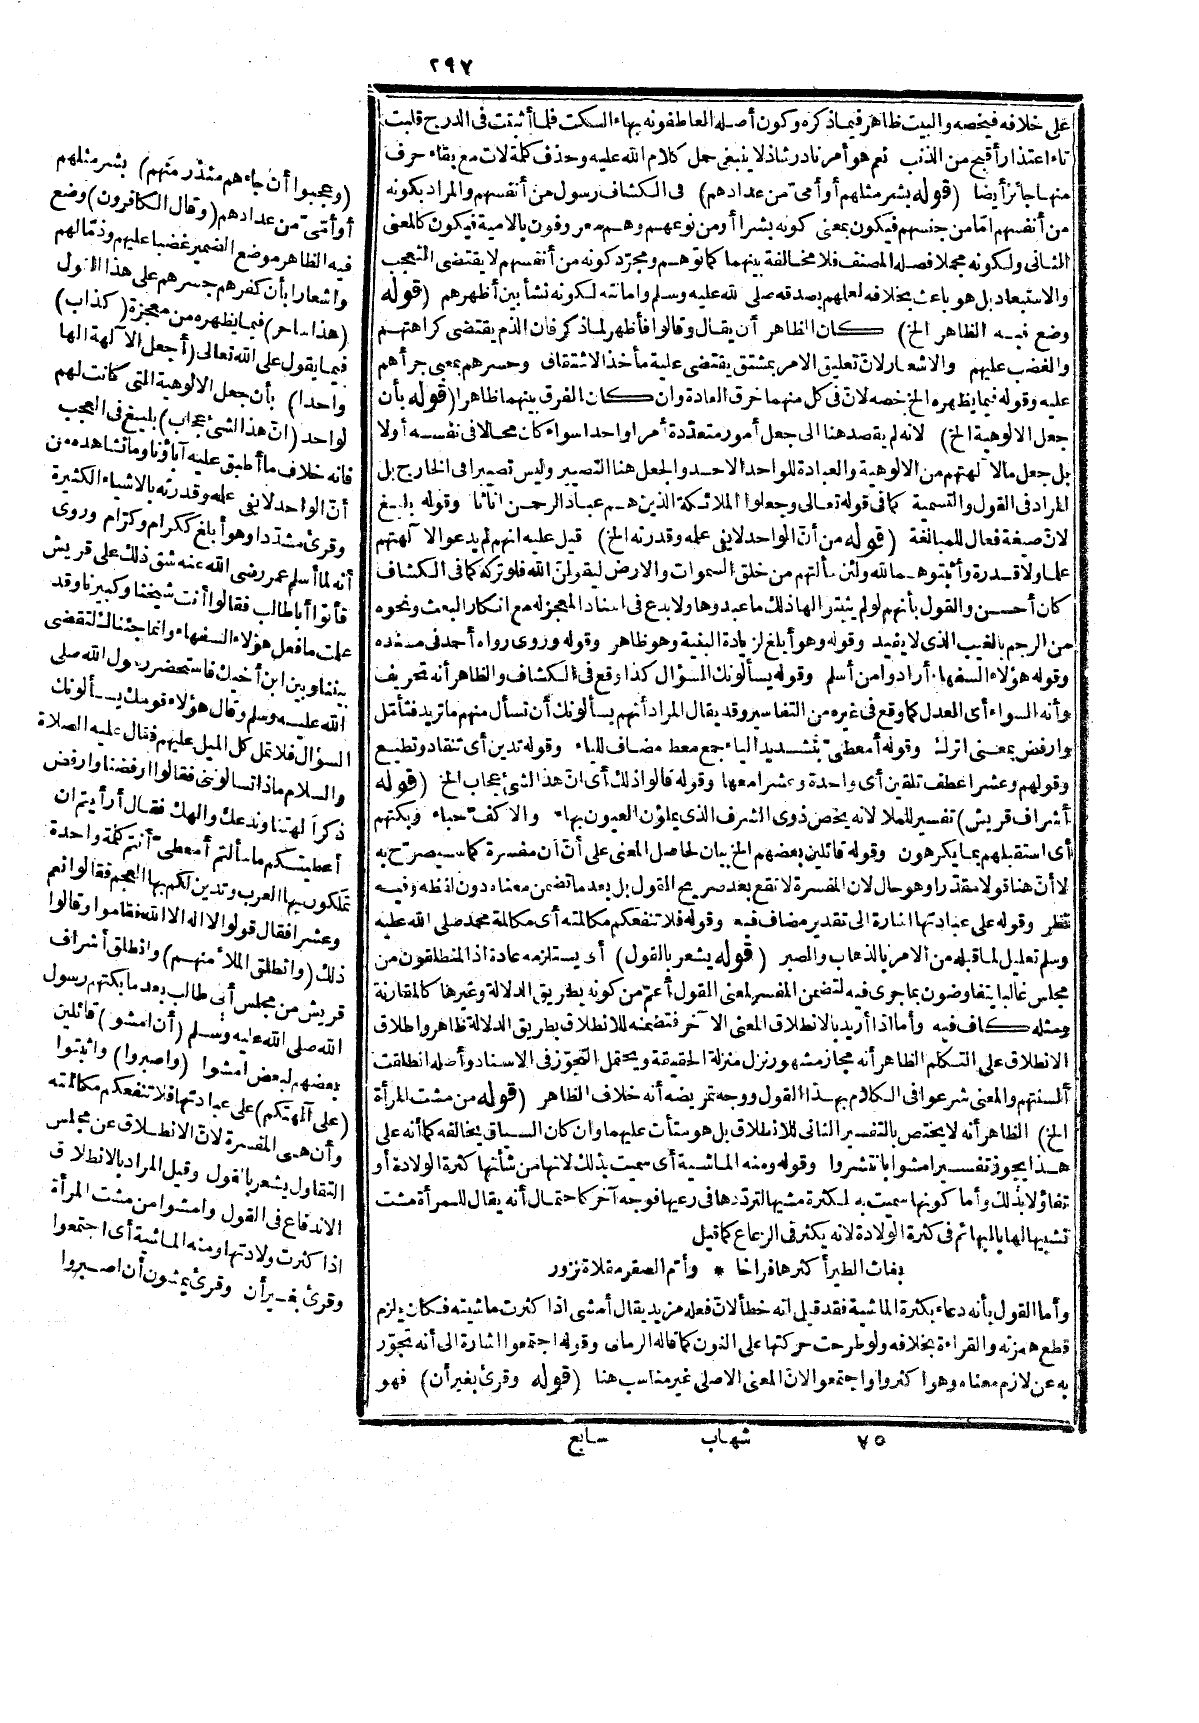 ٢٩٧
على خلافه فيخصه والبيت ظاهر فيما ذكره وكون أصله العاطفونه بهاء السكت فلما أثبتت فى الدرج قلبت
تاء اعتذار أقبح من الذنب نعم هو أمر نادر شاذ لا ينبغى حمل كلام الله عليه وحذف كلمة لات مع بقاء حرف
منها جائز أيضا (قوله بشر مثلهم أو أمى من عدادهم) فى الكشاف رسول من أنفسهم والمراد بكونه
من أنفسهم اما من جنسهم فيكون بمعنى كونه بشرا أو من نوعهم وهم معروفون بالامية فيكون كالمعنى
الثانى ولكونه مجملا فصله المصنف فلا مخالفة بينهما كما توهم ومجرّد كونه من أنفسهم لا يقتضى التعجب
والاستبعاد بل هو باعث بخلافه لعلهم بصدقه صلى الله عليه وسلم وامانته لكونه نشأ بين أظهرهم (قوله
وضع فيه الظاهر الخ) كان الظاهر أن يقال وقالوا فأظهر لما ذكر فان الذم يقتضى كراهتهم
والغضب عليهم والاشعار لانّ تعليق الامر بمشتق يقتضى علية مأخذ الاشتقاق وحسرهم بمعنى جرأهم
عليه وقوله فيما يظهره الخ خصه لانّ فى كل منهما خرق العادة وان كان الفرق بينهما ظاهرا (قوله بأن
جعل الالوهية الخ) لانه لم يقصد هنا الى جعل أمور متعدّدة أمرا واحدا سواء كان محالا فى نفسه أولا
بل جعل مالا لهتهم من الالوهية والعبادة للواحد الاحد والجعل هنا التصيير وليس تصييرا فى الخارج بل
المراد فى القول والتسمية كما فى قوله تعالى وجعلوا الملائكة الذين هم عباد الرحمن اناثا وقوله بليغ
لانّ صيغة فعال للمبالغة (قوله من أنّ الواحد لا يفى علمه وقدرته الخ) قيل عليه انهم لم يدعوا لآلهتهم
علما ولا قدرة وأثبتوهما لله ولئن سألتهم من خلق السموات والارض ليقولنّ الله فلو تركه كما فى الكشاف
كان أحسن والقول بأنهم لو لم يثبتوا لها ذلك ما عبدوها ولا بدع فى اسناد المعجزله مع انكار البعث ونحوه
من الرجم بالغيب الذى لا يفيد وقوله وهو أبلغ لزيادة البنية وهو ظاهر وقوله وروى رواه أحمد فى مسنده
وقوله هؤلاء السفهاء أرادوا من أسلم وقوله يسألونك السؤال كذا وقع فى الكشاف والظاهر أنه تحريف
وأنه السواء أى العدل كما وقع فى غيره من التفاسير وقد يقال المراد أنهم يسألونك أن تسأل منهم ما تريد فتأمّل
وارفض بمعنى اترك وقوله أمعطىّ بتشديد الياء جمع معط مضاف للياء وقوله تدين أى تنقاد وتطيع
وقولهم وعشرا عطف تلقين أى واحدة وعشرا معها وقوله قالوا ذلك أى انّ هذا لشئ عجاب الخ (قوله
أشراف قريش) تفسير للملا لانه يخص ذوى الشرف الذى يملؤن العيون بهاء والاكف حباء وبكتهم
أى استقبلهم بما يكرهون وقوله قائلين بعضهم الخ بيان لحاصل المعنى على أنّ أن مفسرة كما سيصرّح به
لا أنّ هنا قولا مقدّرا وهو حال لان المفسرة لا تقع بعد صريح القول بل بعد ما تضمن معناه دون لفظه وفيه
نظر وقوله على عبادتها اشارة الى تقدير مضاف فيه وقوله فلا تنفعكم مكالمته أى مكالمة محمد صلى الله عليه
وسلم تعليل لما قبله من الامر بالذهاب والصبر (قوله يشعر بالقول) أى يستلزمه عادة اذ المنطلقون من
مجلس غالبا يتفاوضون بما جرى فيه لتضمن المفسر لمعنى القول أعمّ من كونه بطريق الدلالة وغيرها كالمقارنة
ومثله كاف فيه وأما اذا أريد بالانطلاق المعنى الآخر فتضمنه للانطلاق بطريق الدلالة ظاهر واطلاق
الانطلاق على التكلم الظاهر أنه مجاز مشهور نزل منزلة الحقيقة ويحتمل التجوّز فى الاسناد وأصله انطلقت
ألسنتهم والمعنى شرعوا فى الكلام بهذا القول ووجه تمريضه أنه خلاف الظاهر (قوله من مشت المرأة
الخ) الظاهر أنه لا يختص بالتفسير الثانى للانطلاق بل هو متأت عليهما وان كان السياق يخالفه كما أنه على
هذا يجوز تفسير امشوا بانتشروا وقوله ومنه الماشية أى سميت بذلك لانها من شأنها كثرة الولادة أو
تفاؤلا بذلك وأما كونها سميت به لكثرة مشيها لتردّدها فى رعيها فوجه آخر كاحتمال أنه يقال للمرأة مشت
تشبيها لها بالبهائم فى كثرة الولادة لانه يكثر فى الرعاع كما قيل
بغاث الطير أكثرها فراخا * وأم الصقر مقلاة نزور
وأما القول بأنه دعاء بكثرة الماشية فقد قيل انه خطأ لانّ فعله مزيد يقال أمشى اذا كثرت ماشيته فكان يلزم
قطع همزته والقراءة بخلافه ولو طرحت حركتها على النون كما قاله الرمانى وقوله اجتمعوا اشارة الى أنه تجوّز
به عن لازم معناه وهو اكثروا واجتمعوا لان المعنى الاصلى غير مناسب هنا (قوله وقرئ بغير أن) فهو
(وعجبوا أن جاءهم منذر منهم) بشر مثلهم
أو أمّىّ من عدادهم (وقال الكافرون) وضع
فيه الظاهر موضع الضمير غضبا عليهم وذمّا لهم
واشعارا بأن كفرهم جسرهم على هذا القول
(هذا ساحر) فيما يظهره من معجزة (كذاب)
فيما يقول على الله تعالى (أجعل الآلهة الها
واحدا) بأن جعل الالوهية التى كانت لهم
لواحد (انّ هذا لشئ عجاب) بليغ فى العجب
فانه خلاف ما أطبق عليه آباؤنا وما نشاهده من
أنّ الواحد لا يفى علمه وقدرته بالاشياء الكثيرة
وقرئ مشدّدا وهو أبلغ ككرام وكرّام وروى
أنه لما أسلم عمر رضى الله عنه شق ذلك على قريش
فأتوا أبا طالب فقالوا أنت شيخنا وكبيرنا وقد
علمت ما فعل هؤلاء السفهاء وانما جئناك لتقضى
بيننا وبين ابن أخيك فاستحضر رسول الله صلى
الله عليه وسلم وقال هؤلاء قومك يسألونك
السؤال فلا تمل كل الميل عليهم فقال عليه الصلاة
والسلام ماذا تسألوننى فقالوا ارفضنا وارفض
ذكر آلهتنا وندعك والهك فقال أرأيتم ان
أعطيتكم ما سألتم أمعطىّ أنتم كلمة واحدة
تملكون بها العرب وتدين لكم بها العجم فقالوا نعم
وعشرا فقال قولوا لا اله الا الله فقاموا وقالوا
ذلك (وانطلق الملأ منهم) وانطلق أشراف
قريش من مجلس أبى طالب بعد ما بكتهم رسول
الله صلى الله عليه وسلم (أن امشوا) قائلين
بعضهم لبعض امشوا (واصبروا) واثبتوا
(على آلهتكم) على عبادتها فلا تنفعكم مكالمته
وأن هى المفسرة لانّ الانطلاق عن مجلس
التقاول يشعر بالقول وقيل المراد بالانطلاق
الاندفاع فى القول وامشوا من مشت المرأة
اذا كثرت ولادتها ومنه الماشية أى اجتمعوا
وقرئ بغير أن وقرئ يمشون أن اصبروا
٧٥ شهاب سابع